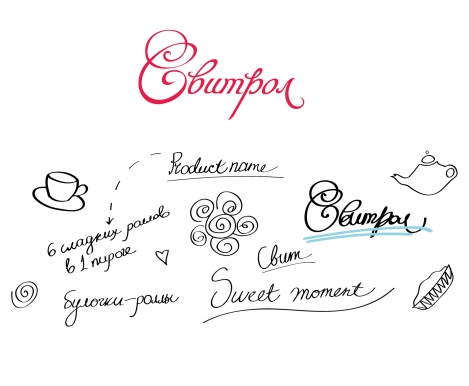 Свитрол
Product name
6 сладких роллов
в 1 пироге
Свитрол
Свит
булочки-роллы
Sweet moment